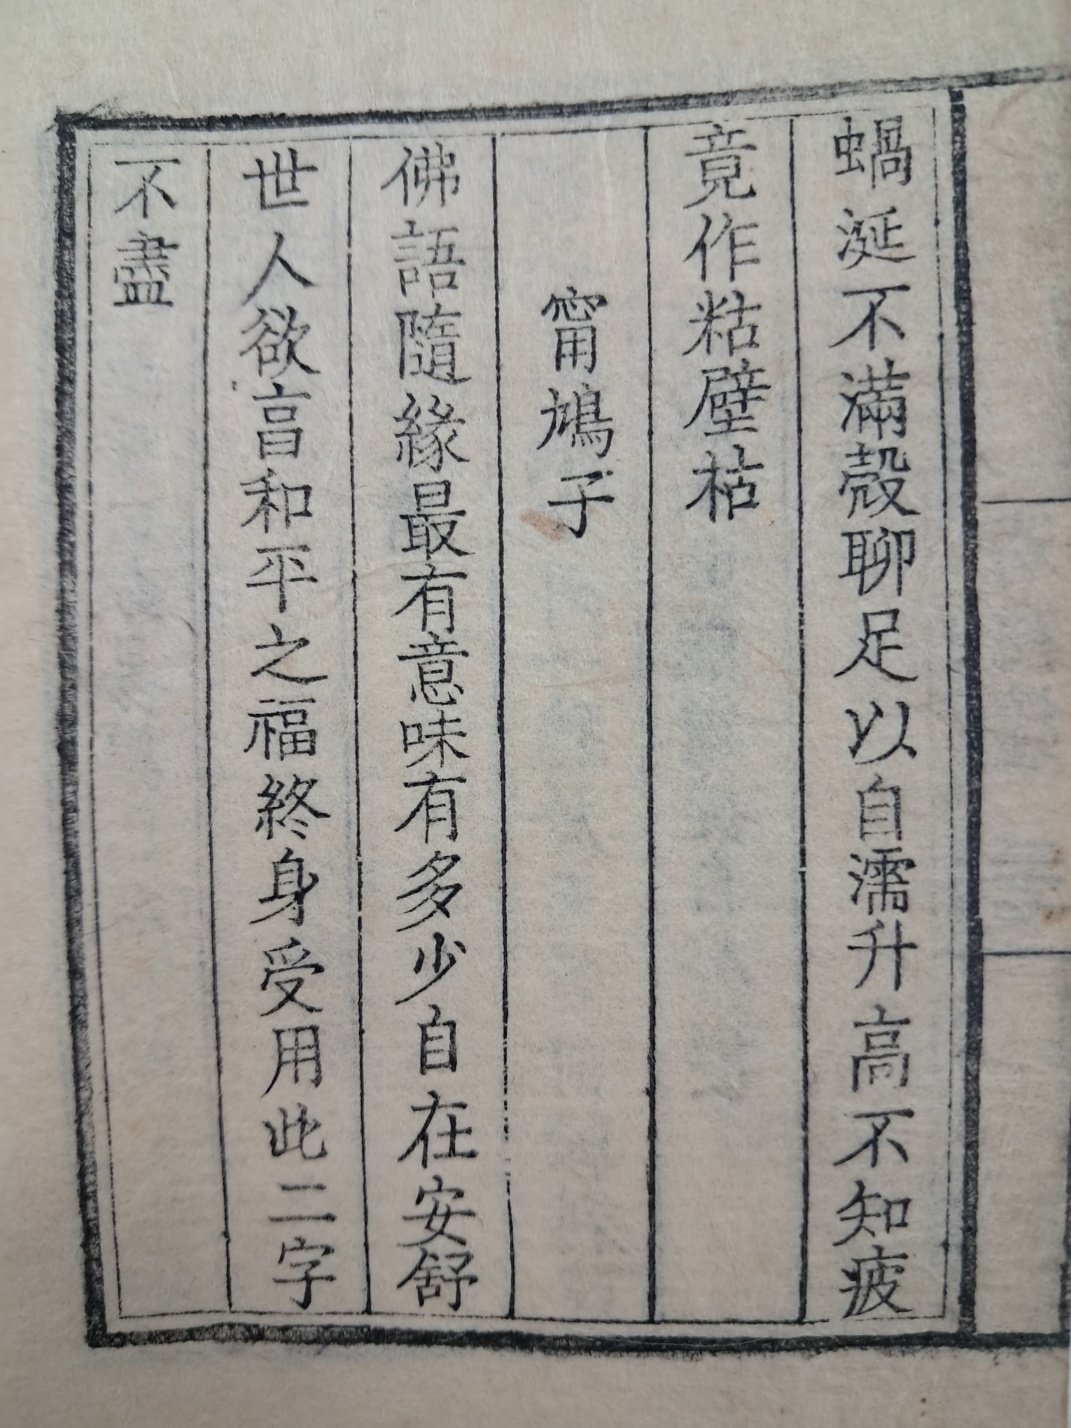 蝸涎不滿殼聊足以自濡升高不知疲
竟作粘壁枯
甯鳩子
佛語隨緣最有意味有多少自在安舒
世人欲亯和平之福終身受用此二字
不盡